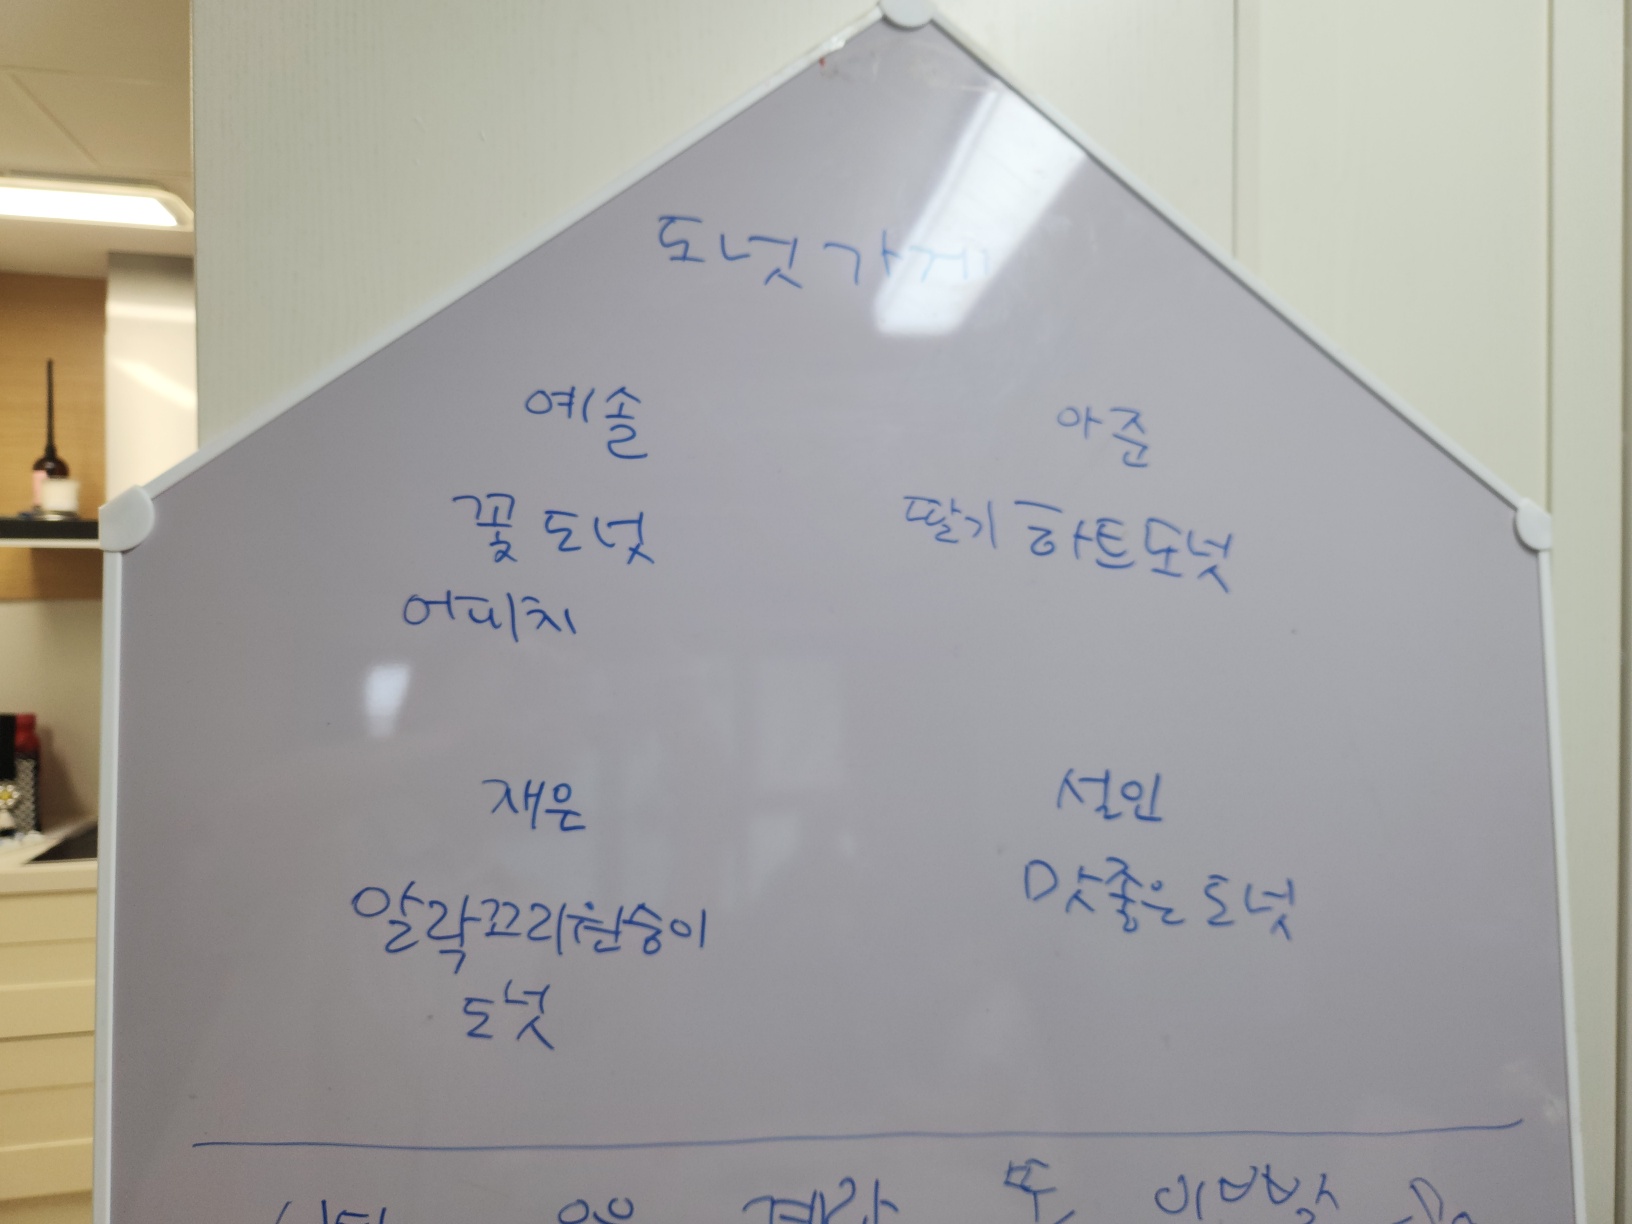 도넛가게
예솔
아준
꽃 도넛
딸기 하트도넛
어피치
재은
설인
알락꼬리원숭이
맛좋은 도넛
도넛